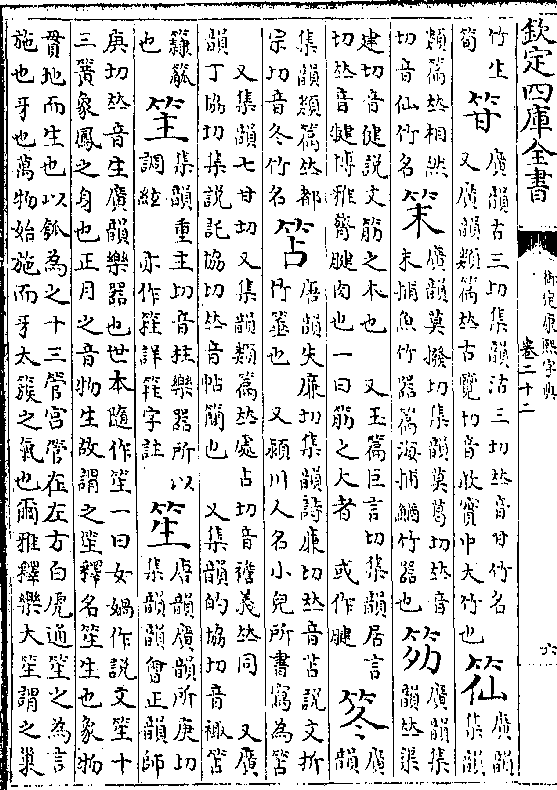 欽定四庫全書
御定康熙字典
卷二十二
六
竹生
筍
䇞
廣韻古三切集韻沽三切𠀤音甘竹名
又廣韻類篇𠀤古覽切音敢實中大竹也
⿱竹仙
廣韻集韻
類篇𠀤相然
切音仙竹名
⿱竹末
廣韻莫撥切集韻莫葛切𠀤音
末捕魚竹器篇海捕鯛竹器也
⿱竹⿰夕力
廣韻集
韻𠀤渠
建切音健說文筋之本也 又玉篇巨言切集韻居言
切𠀤音犍博雅腱肉也一曰筋之大者 或作腱
笗
廣
韻
集韻類篇𠀤都
宗切音冬竹名
笘
唐韻失廉切集韻詩廉切𠀤音苫說文折
竹箠也 又潁川人名小兒所書寫為笘
又集韻七甘切又集韻類篇𠀤處占切音襜義𠀤同 又廣
韻丁協切集說託協切𠀤音帖簡也 又集韻的協切音褋笘
籋觚
也
⿱竹主
集韻重主切音拄樂器所以
調絃 亦作詳字註
笙
唐韻廣韻所庚切
集韻韻會正韻師
庚切𠀤音生廣韻樂器也世本隨作笙一曰女媧作說文笙十
三簧象鳳之身也正月之音物生故謂之笙釋名笙生也象物
貫地而生也以匏為之十三管宮管在左方白虎通笙之為言
施也牙也萬物始施而牙太蔟之氣也爾雅釋樂大笙謂之巢